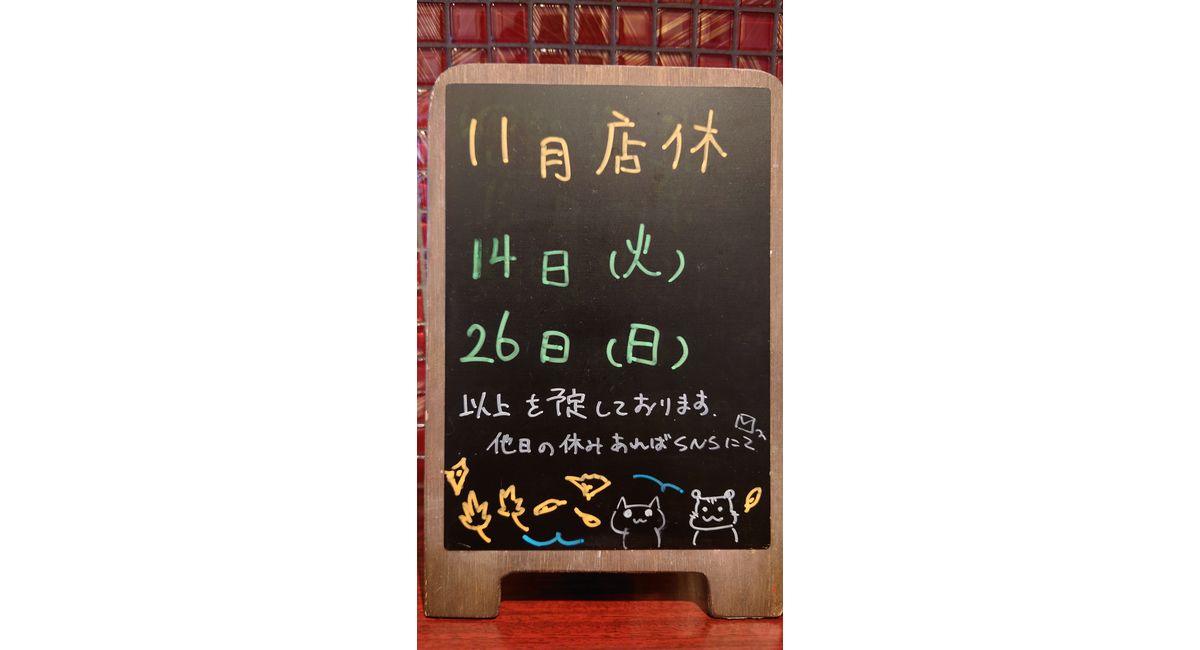 11月店休
14日(火)
26日(日)
以上を予定しております.
他日の休みあればSNSにて